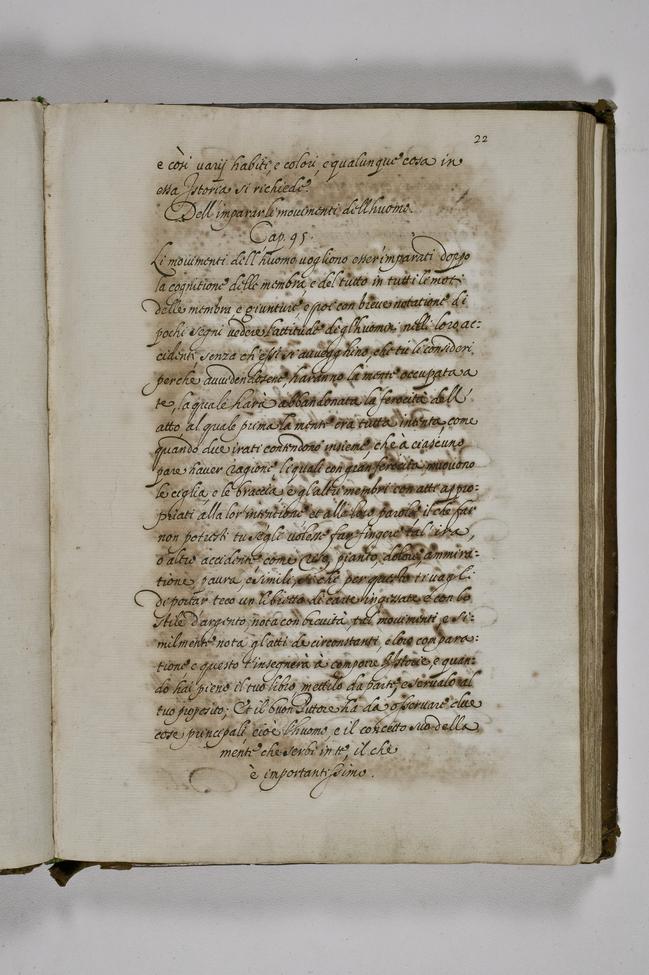 22
e così varij habiti, e colori, e qualunque cosa in
essa Istoria si richiede.
Dell'imparar li movimenti dell'huomo.
Cap. 95.
Li movimenti dell'huomo vogliono esser imparati doppo
la cognitione delle membra, e del tutto in tutti le moti
delle membra e giunture e poi con breve notatione di
pochi segni vedere l'attitudine degl'huomini nelli loro ac:
cidenti senza ch'essi si avvegghino, che tu li consideri,
perche avvedendosene haranno la mente occupata a
te, la quale harà abbandonata la ferocità dell'
atto al quale prima la mente era tutta intenta, come
quando due irati contendono insieme, che à ciascuno
pare haver ragione, li quali con gran ferocità muovono
le ciglia, e le braccia, e gl'altri membri con atti appro:
priati alla lor intentione et alle loro parole, il che far
non potresti tu se gli volesse far fingere tal ira,
o altro accidente come riso, pianto, dolore, ammira:
tione, paura, e simili, si che per questo
di portar teco un libretto di carte ingessate, e con lo
stile d'argento nota con brevità tali movimenti, e si:
milmente nota gl'atti de circonstanti, e loro compara:
tione e questo t'insegnerà à comporre l'Istorie, e quan:
do hai pieno il tuo libro, mettilo da parte, e servalo al
tuo proposito; Et il buon Pittore ha da osservare due
cose principali, cioè l'huomo, e il concetto suo della
mente che serbi in te, il che
è importantissimo.